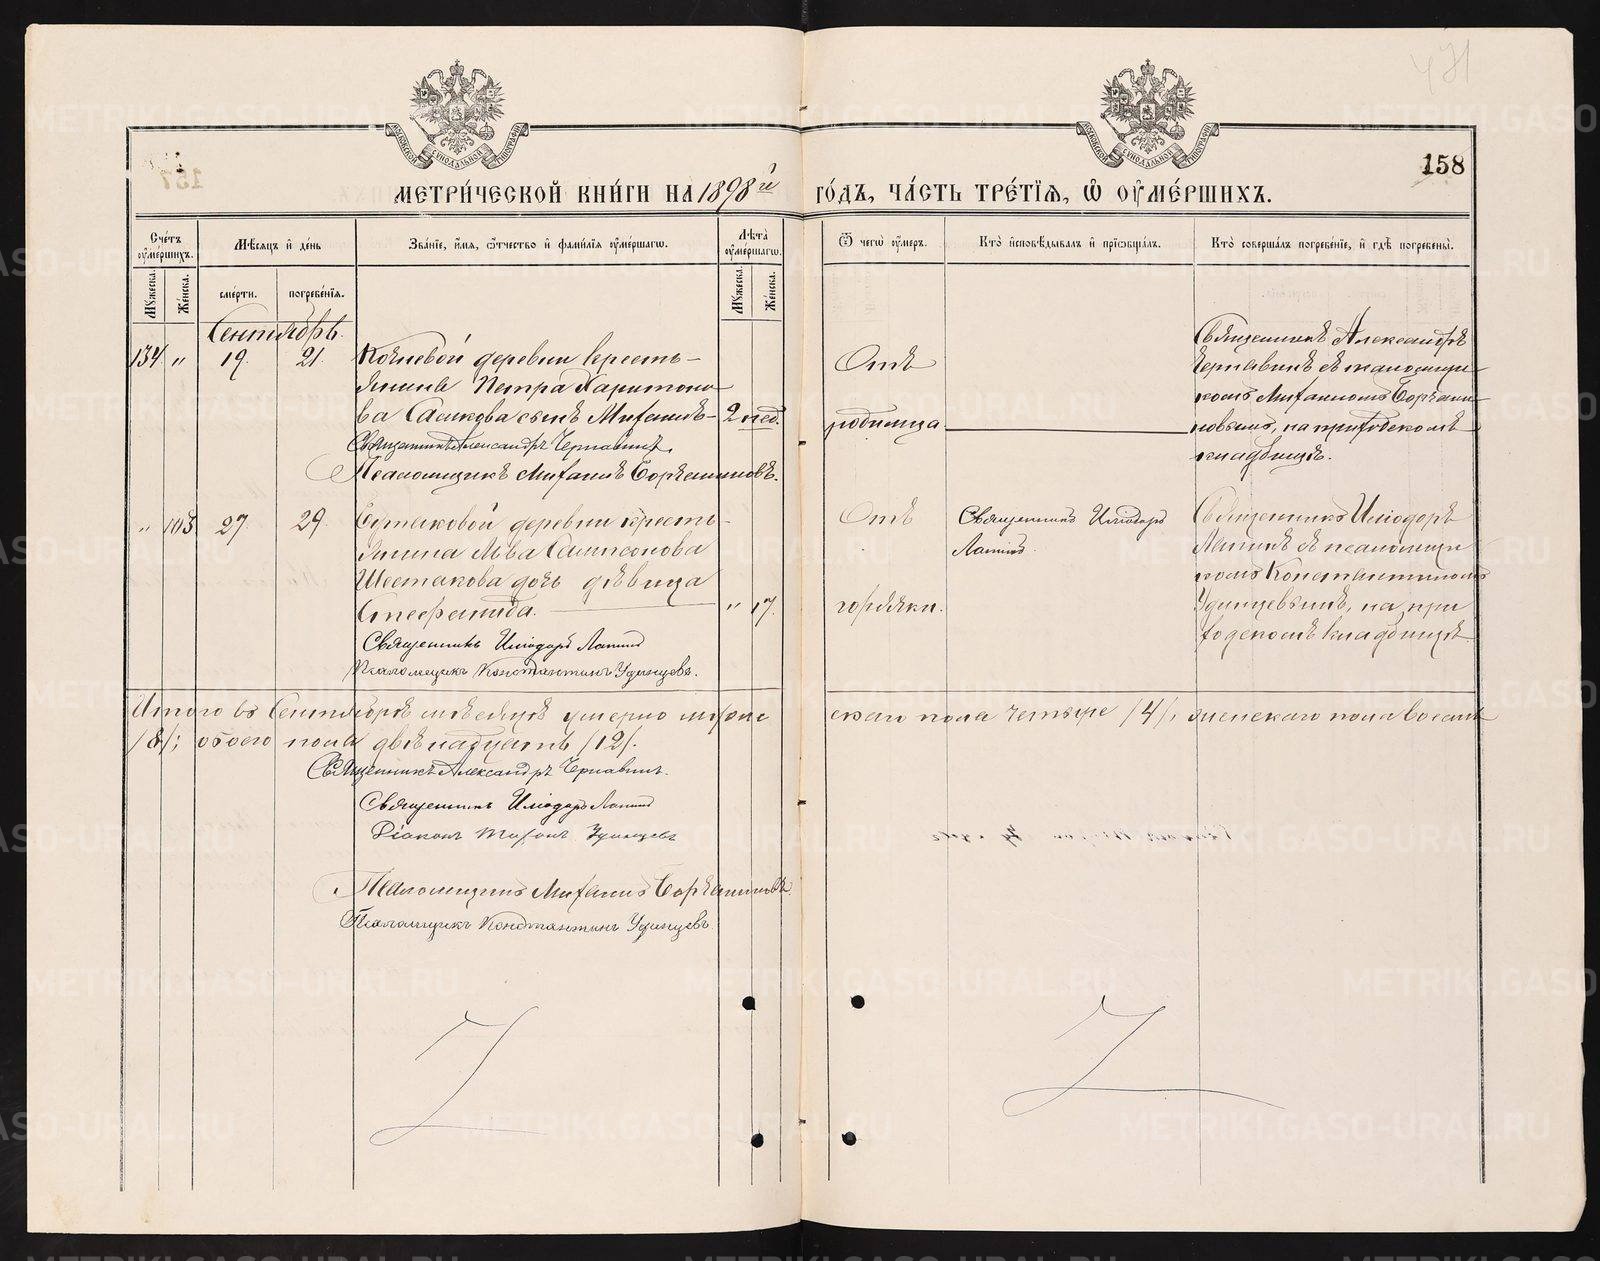 158
МЕТРИ́ЧЕСКОЙ КНИ́ГИ НА 1898й ГО́ДЪ, ЧА́СТЬ ТРЕ́ТЇѦ, Ѡ ОУМЕ́РШИХЪ.
Сче́тъ оумершихъ.
Мужеска.
Женска.
Мѣсяцъ и день
смерти.
погребенїя.
Званїе, имя, отчество и фамилїя оумершагѡ.
Лѣта оумершагѡ.
Мужеска.
Женска.
Ѿ чегѡ оумеръ.
Кто исповѣдывалъ и прїѡбщалъ.
Кто совершалъ погребенїе, и гдѣ погребены.
Сентябрь.
134 " 19. 21.
деревни кресть-
янина Петра Харитоно-
ва сынъ Михаилъ - 2 нед.
Священникъ Александръ Чернавинъ.
Псаломщикъ Михаилъ
Отъ
родимца
Священникъ Александръ
Чернавинъ съ псаломщи-
комъ Михаиломъ
на приходскомъ
кладбищѣ.
" 103 27. 29.
деревни кресть-
янина Льва Сампсонова
Шестакова дочь дѣвица
Стефанида. " 17.
Священникъ Иліодоръ Лапинъ
Псаломщикъ Константинъ Удинцевъ.
Отъ
горячки.
Священникъ Иліодоръ
Лапинъ.
Священникъ Иліодоръ
Лапинъ съ псаломщи
комъ Константиномъ
Удинцевымъ, на при
ходскомъ кладбищѣ
Итого въ Сентябрѣ мѣсяцѣ умерло мужескаго пола четыре /4/, женскаго пола восемь
/8/; обоего пола двѣнадцать /12/.
Священникъ Александръ Чернавинъ.
Священникъ Иліодоръ Лапинъ
Діаконъ Удинцевъ
Псаломщикъ Михаилъ
Псаломщикъ Константинъ Удинцевъ
METRIKI.GASO-URAL.RU